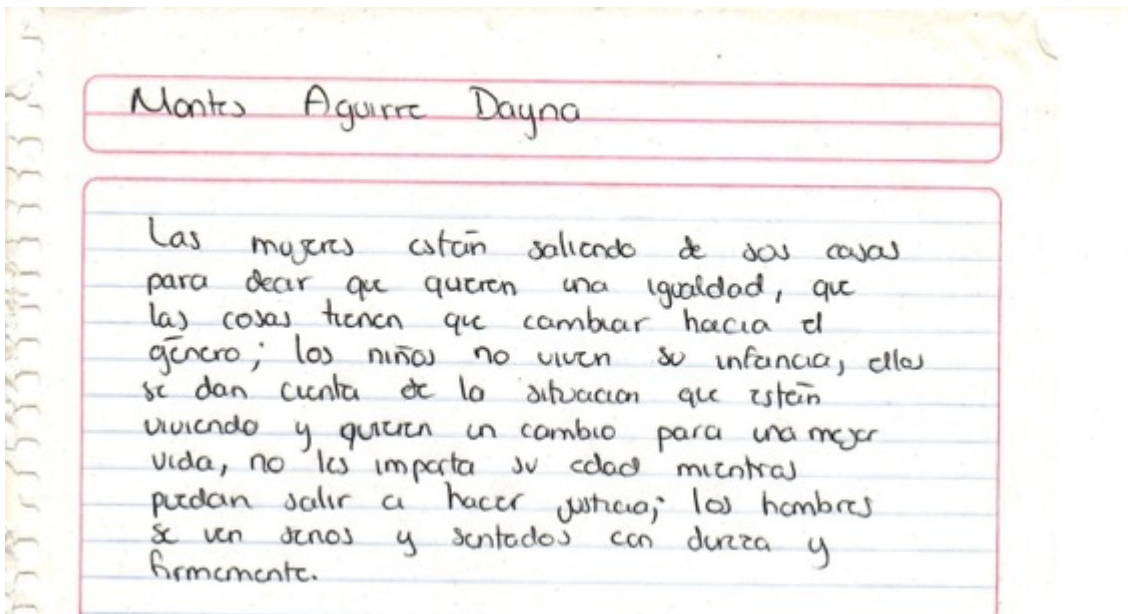 Montes Aguirre Dayna
Las mujeres están saliendo de sus casas
para decir que quieren una igualdad, que
las cosas tienen que cambiar hacia el
género; los niños no viven su infancia, ellos
se dan cuenta de la situacion que están
viviendo y quieren un cambio para una mejor
vida, no les importa su edad mientras
puedan salir a hacer justicia; los hombres
se ven serios y sentados con dureza y
firmemente.